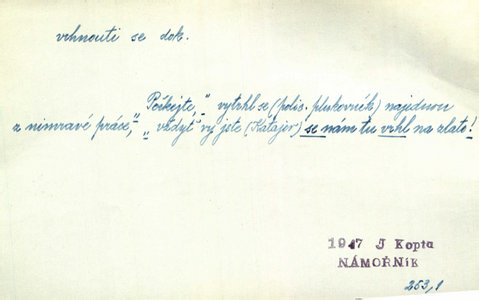 vrhnouti se dok.
"Počkejte," vytrhl se (polis. plukovník) najednou
z nimravé práce, "vždyť vy jste (Katajev) se nám tu vrhl na zlato!
1947 J Kopta
NÁMOŘNÍK
253,1